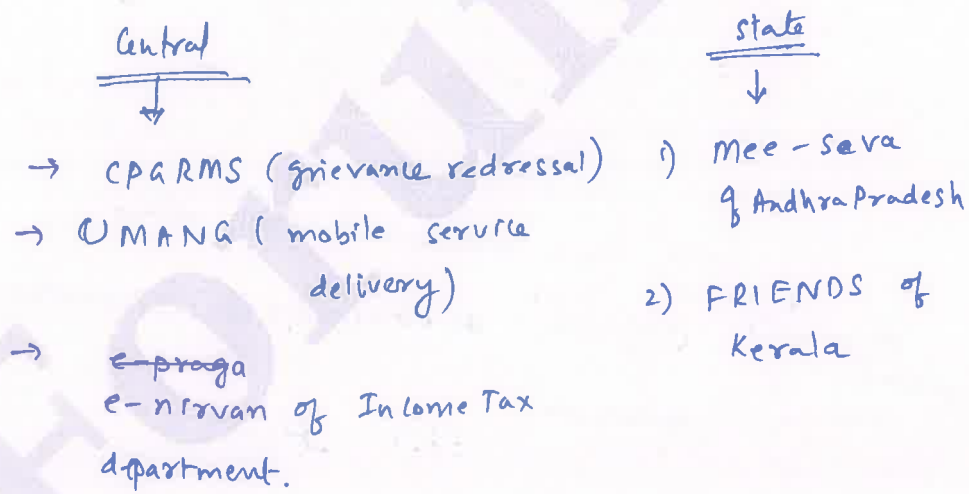 Central
→ CPGRMS (grievance redressal)
→ UMANG (mobile service
delivery)
→ e-praga
e-nirvan of Income Tax
department.
state
1) Mee-Seva
of Andhra Pradesh
2) FRIENDS of
Kerala
Forum